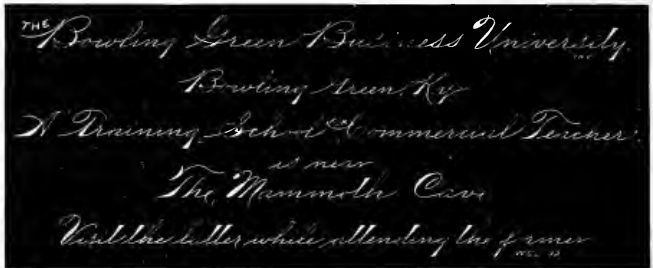 THE Bowling Green Business University. INC
Bowling Green, Ky
A Training School for Commercial Teachers.
is near
The Mammoth Cave
Visit the latter while attending the former